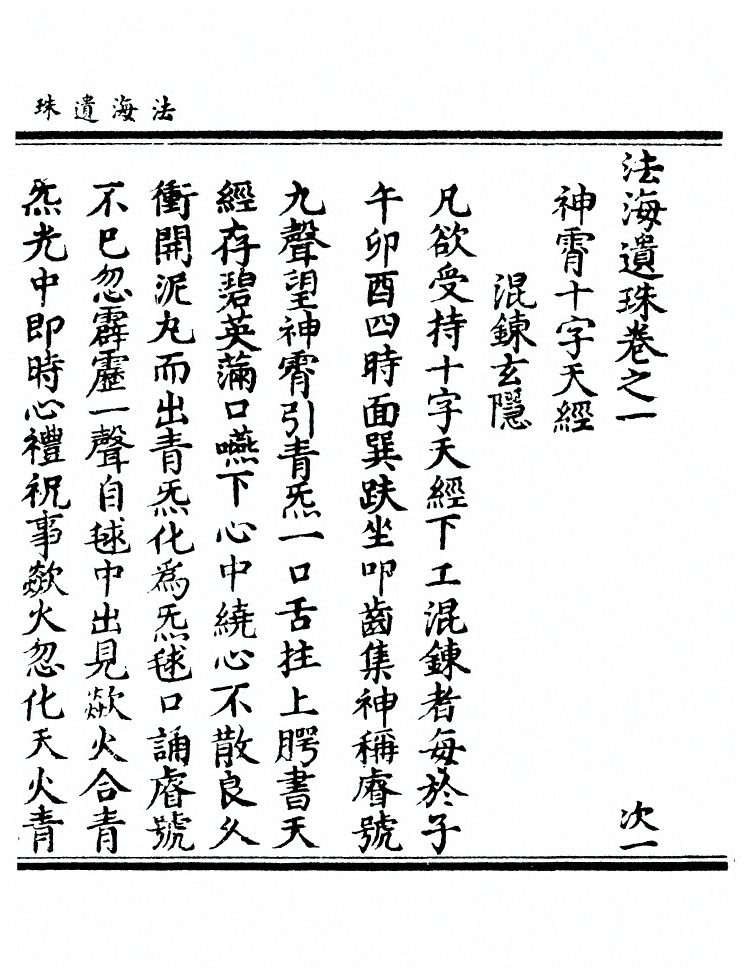 法海遺珠
法海遺珠卷之一　次一
神霄十字天經
混鍊玄隱
凡欲受持十字天經下工混鍊者每於子
午卯酉四時面巽趺坐叩齒集神稱睿號
九聲望神霄引青炁一口舌拄上腭書天
經存碧英滿口嚥下心中繞心不散良久
衝開泥丸而出青炁化為炁毬口誦睿號
不巳忽霹靂一聲自毬中出見歘火合青
炁光中即時心禮祝事歘火忽化天火青